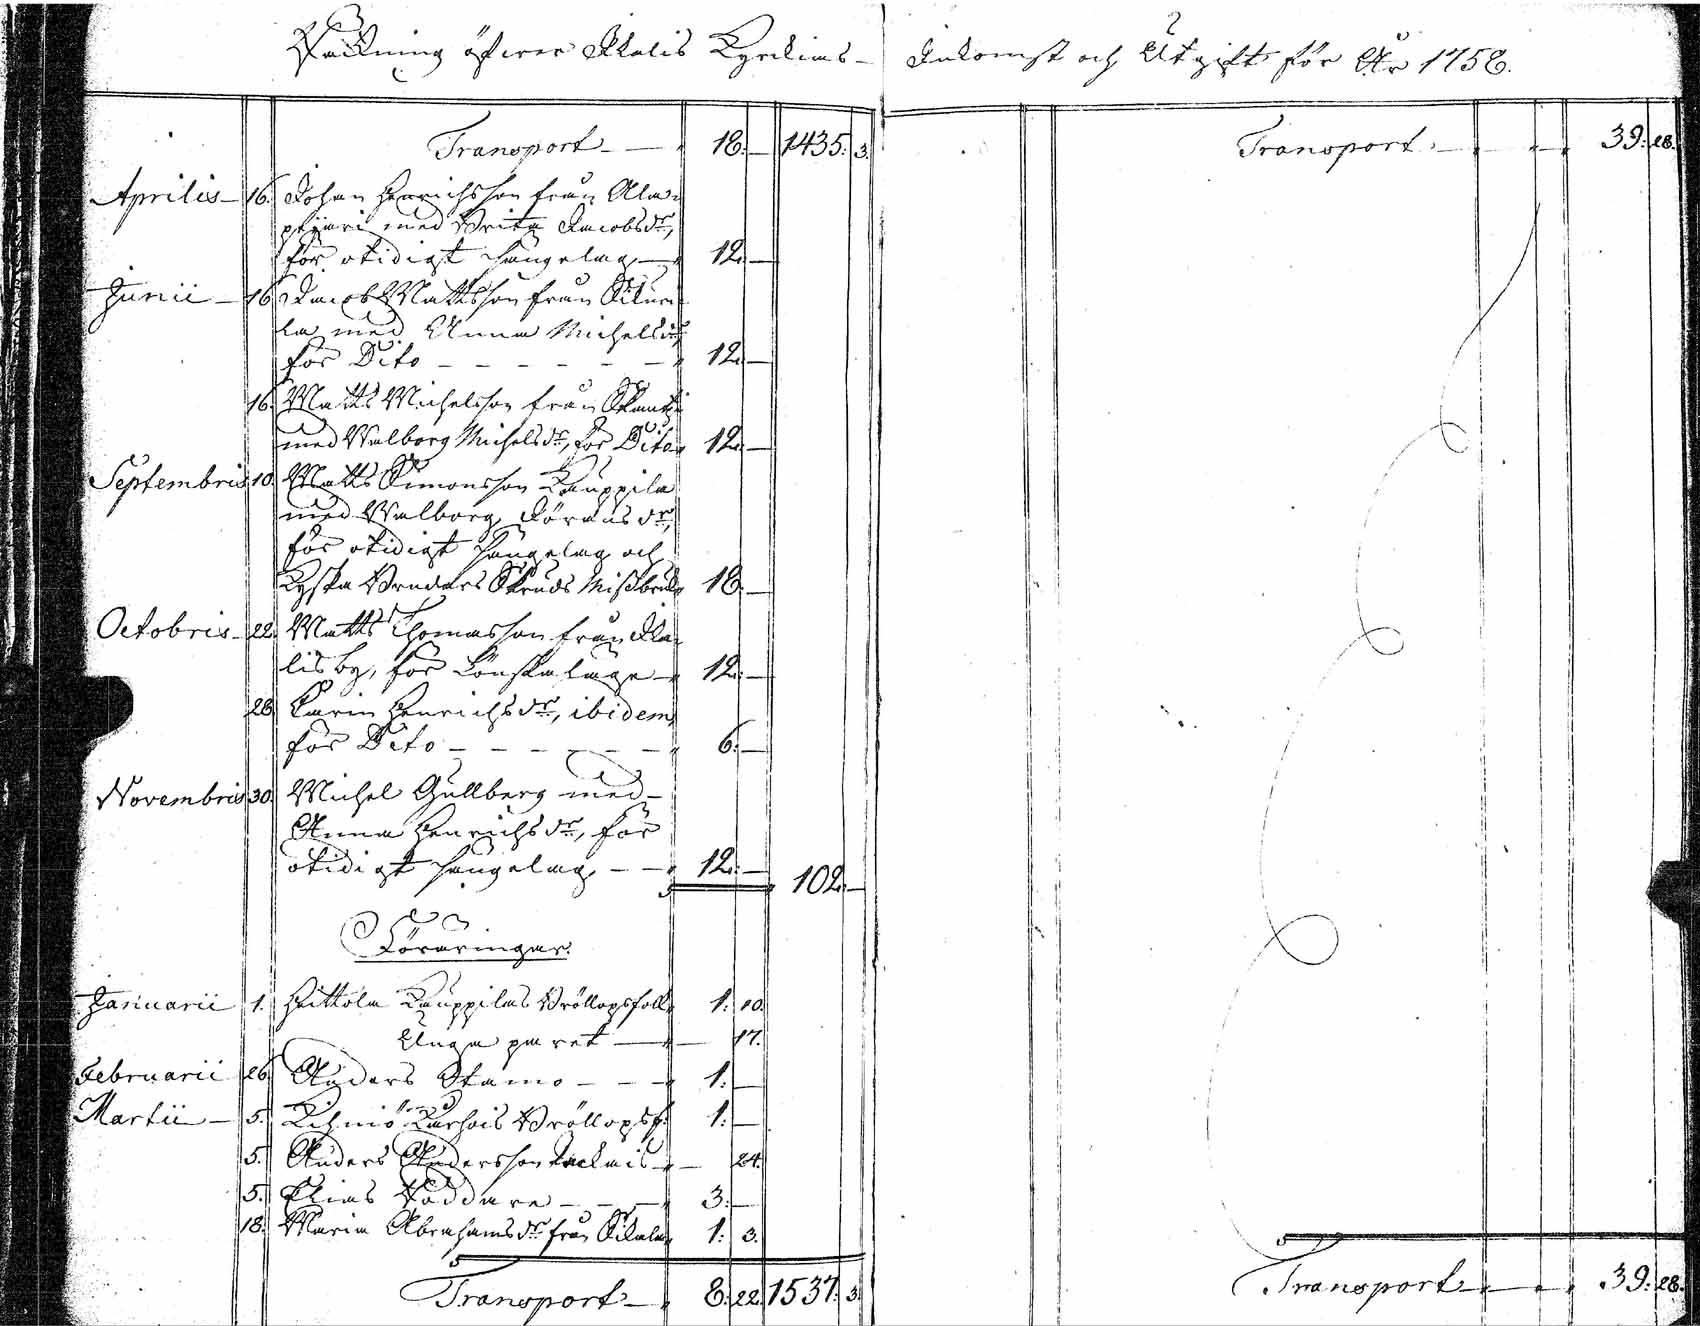 Räkning öfwer Ikalis Kyrkias – Inkomst och Utgift för År 1758.
Transport – 18. – 1435. 3.
Aprilis – 16. Johan Henrichsson från Ala-
med Brita Jacobsdr,
för otidigt sängelag – 12. –
Junii – 16. Jacob Mattsson från
la med Anna Michelsdr,
för Dito – – – – – – 12. –
16. Matts Michelsson från
med Walborg Michelsdr, för Dito 12. –
Septembris 10. Matts Simonsson Kauppila
med Walborg Göransdr,
för otidigt sängelag och
Kyska Bruders Skruds Missbruk 18. –
Octobris – 22. Matts Thomasson från Ika-
lis by, för Lönskaläge – 12. –
28. Carin Henrichsdr, ibidem
för Dito – – – – – – 6. –
Novembris 30. Michel Gullberg med –
Anna Henrichsdr, för
otidigt sängelag – – 12. – 102. –
Föräringar.
Januarii 1. Heittola Kauppilas Bröllopsfolk 1. 10.
Unga paret – – 17.
Februarii 26. Anders Stamo – – – 1. –
Martii – 5. Bröllopsf. 1. –
5. Anders Andersson – – 24.
5. Elias – – – 3. –
18. Maria Abrahamsdr från 1. 3.
Transport – 8. 22. 1537. 3.
Transport – – – 39. 28.
Transport – – – 39. 28.